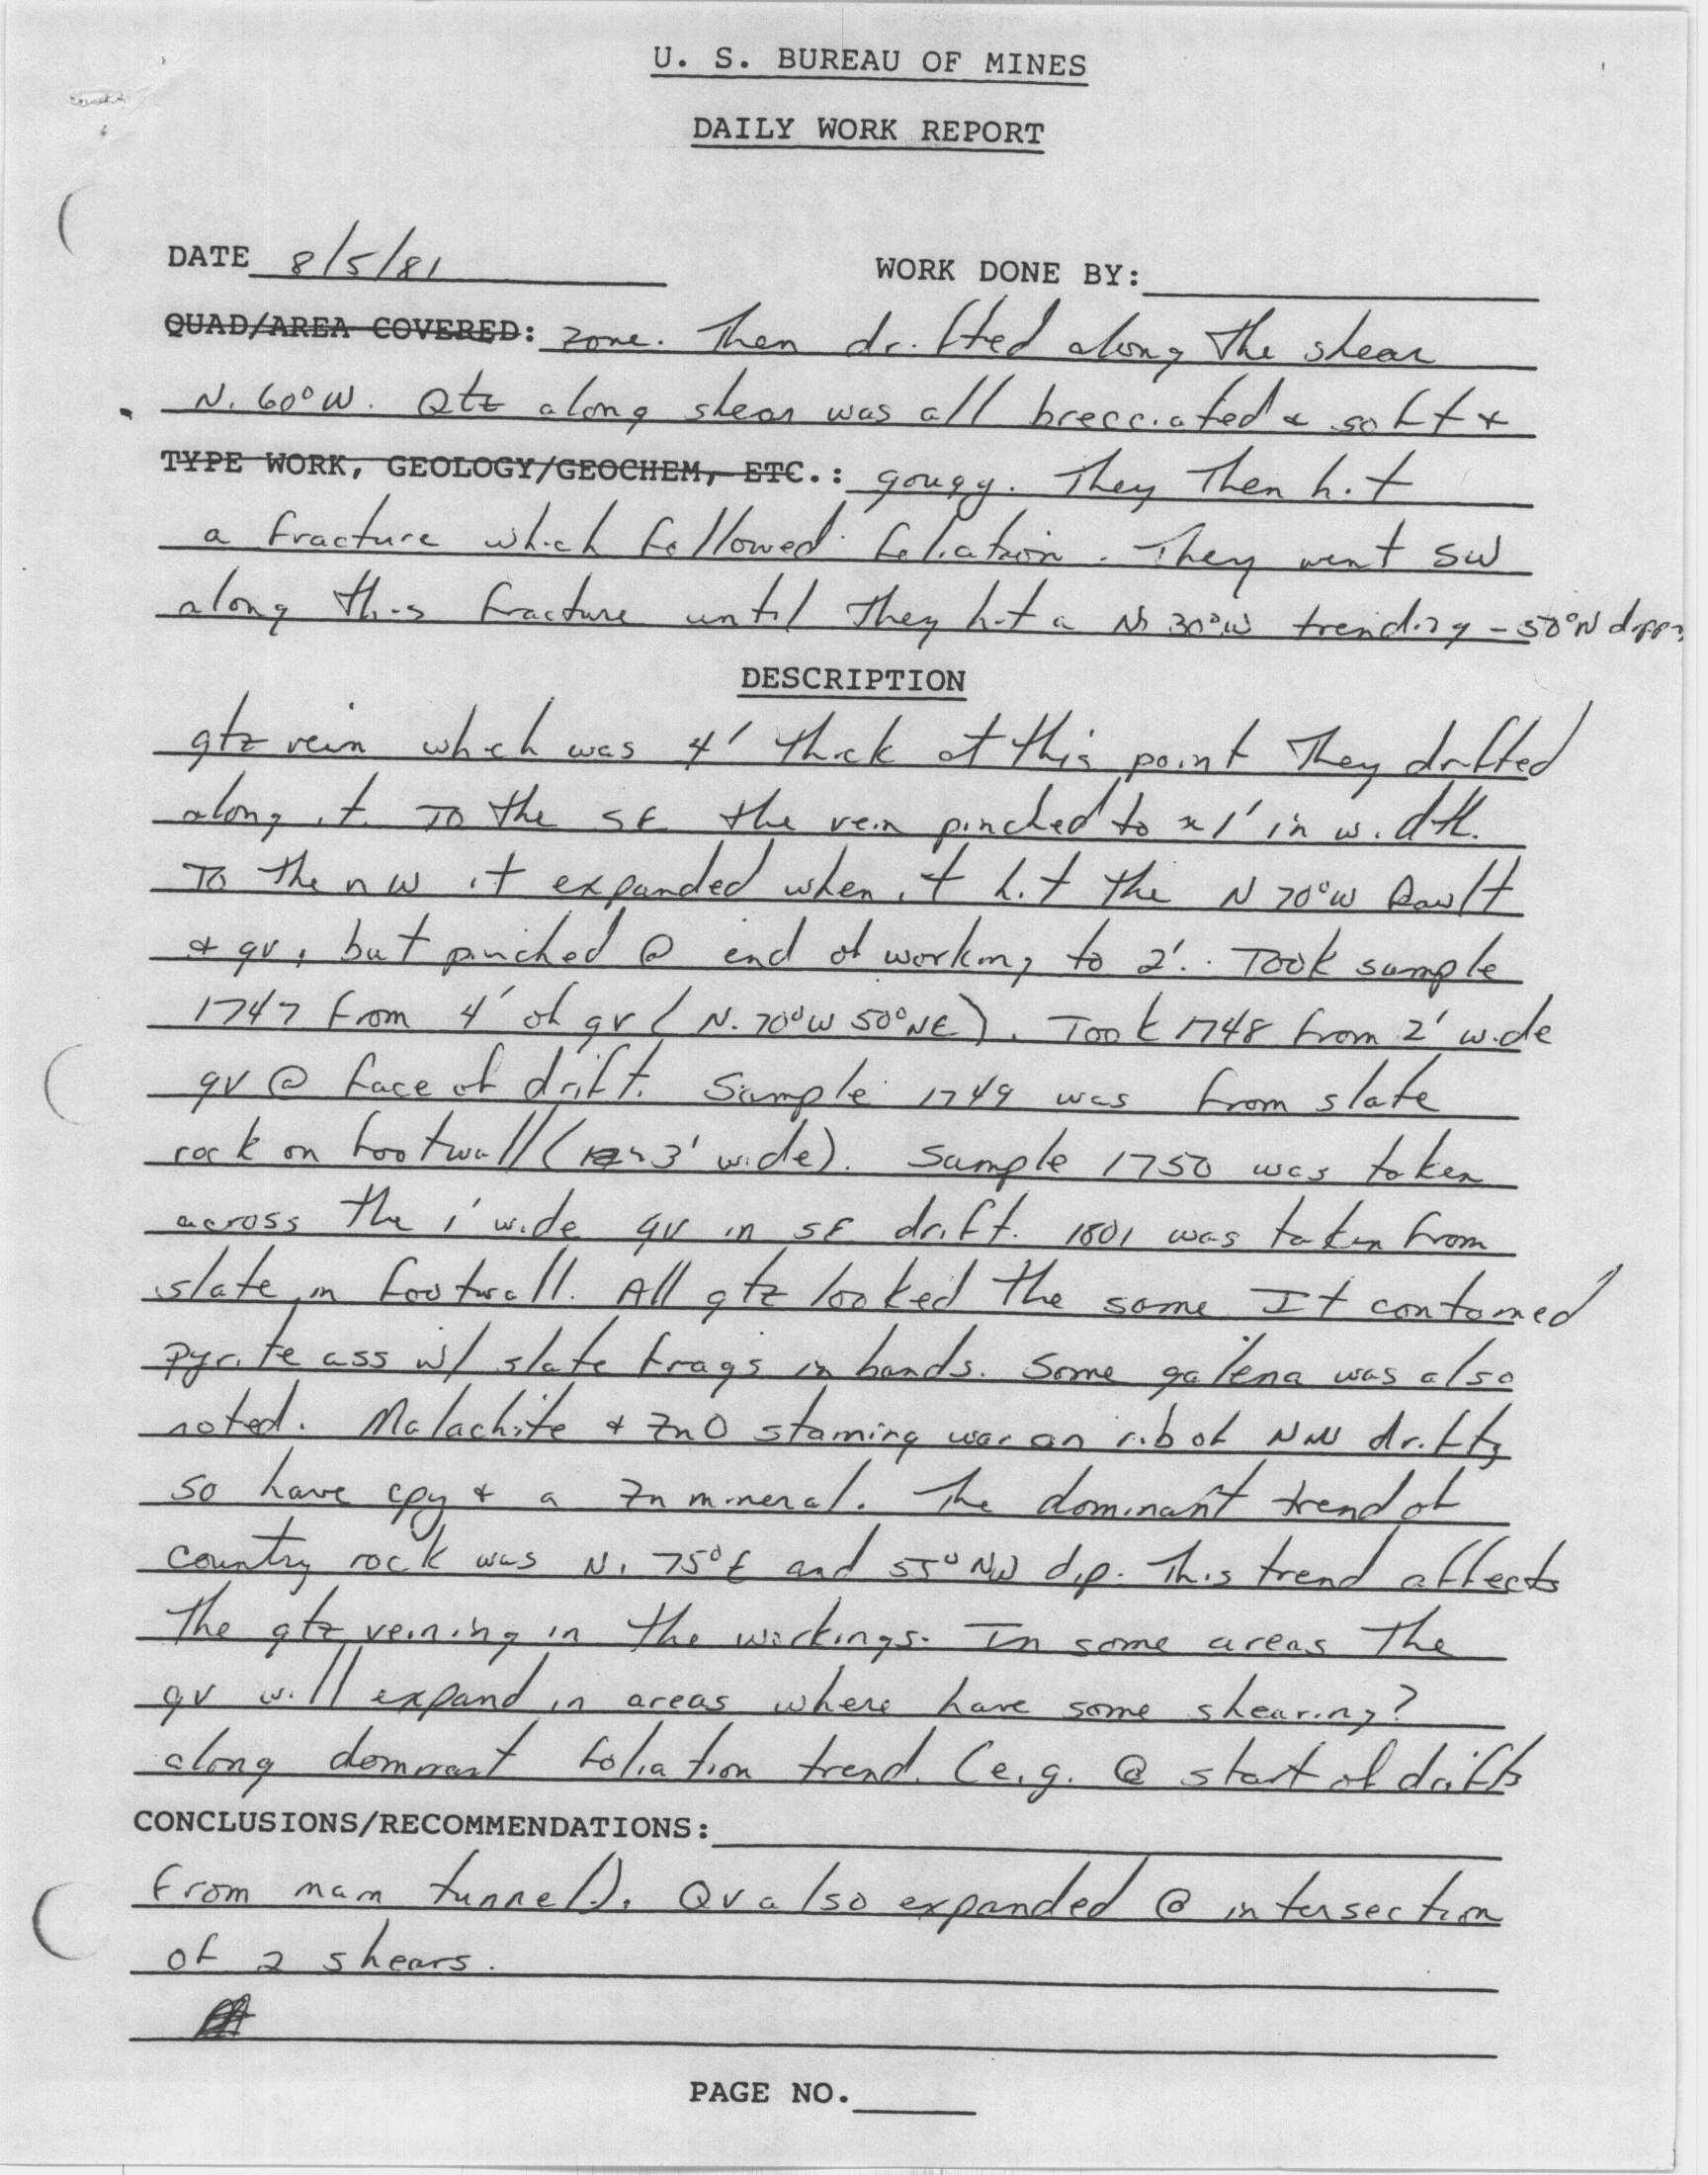 U. S. BUREAU OF MINES
DAILY WORK REPORT
DATE 8/5/81 WORK DONE BY:
QUAD/AREA COVERED: zone. Then drifted along the shear
N. 60°W. Qtz along shear was all brecciated & soft &
TYPE WORK, GEOLOGY/GEOCHEM, ETC.: gougy. They then hit
a fracture which followed foliation. They went SW
along this fracture until they hit a N 30°W trending - 50°N dipping
DESCRIPTION
qtz vein which was 4' thick at this point They drifted
along it. To the SE the vein pinched to ≈ 1' in width.
To the NW it expanded when it hit the N 70°W fault
& qv, but pinched @ end of working to 2'. Took sample
1747 from 4' of qv (N. 70°W 50°NE). Took 1748 from 2' wide
qv @ face of drift. Sample 1749 was from slate
rock on footwall (≈ 3' wide). Sample 1750 was taken
across the 1' wide qv in SE drift. 1801 was taken from
slate in footwall. All qtz looked the same It contained
pyrite ass w/ slate frags in bands. Some galena was also
noted. Malachite & ZnO staining was on rib of NW drift,
so have cpy & a Zn mineral. The dominant trend of
country rock was N. 75°E and 55° NW dip. This trend affects
the qtz veining in the workings. In some areas the
qv will expand in areas where have some shearing?
along dominant foliation trend. (e.g. @ start of drifts
CONCLUSIONS/RECOMMENDATIONS:
from main tunnel). Qv also expanded @ intersection
of 2 shears.
PAGE NO.